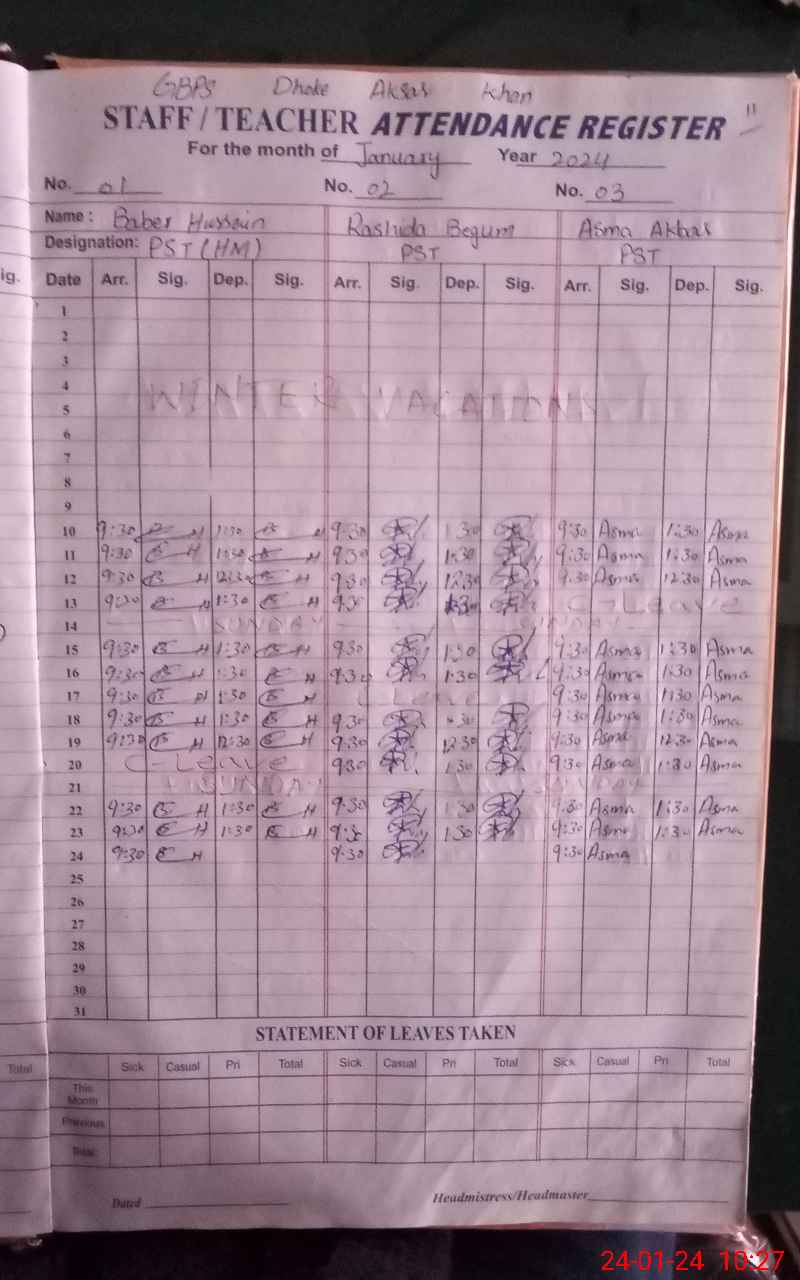 GBPS Dhoke Aksar Khan
STAFF / TEACHER ATTENDANCE REGISTER 11
For the month of January Year 2024
No. 01 No. 02 No. 03
Name : Baber Hussain Rashida Begum Asma Akbar
Designation: PST (HM) PST PST
ig. Date Arr. Sig. Dep. Sig. Arr. Sig. Dep. Sig. Arr. Sig. Dep. Sig.
1
2
3
4
WINTER VACATION
5
6
7
8
9
10 9:30 H 1:30 H 9:30 1:30 9:30 Asma 1:30 Asma
11 9:30 H 1:30 H 9:30 1:30 9:30 Asma 1:30 Asma
12 9:30 H 12:30 H 9:30 12:30 9:30 Asma 12:30 Asma
13 9:30 H 1:30 H 9:30 1:30 C-Leave
14 SUNDAY SUNDAY
15 9:30 H 1:30 H 9:30 1:30 9:30 Asma 1:30 Asma
16 9:30 H 1:30 H 9:30 1:30 9:30 Asma 1:30 Asma
17 9:30 H 1:30 H Leave 9:30 Asma 1:30 Asma
18 9:30 H 1:30 H 9:30 1:30 9:30 Asma 1:30 Asma
19 9:30 H 12:30 H 9:30 12:30 9:30 Asma 12:30 Asma
20 C-Leave 9:30 1:30 9:30 Asma 1:30 Asma
21 SUNDAY SUNDAY
22 9:30 H 1:30 H 9:30 1:30 9:30 Asma 1:30 Asma
23 9:30 H 1:30 H 9:30 1:30 9:30 Asma 1:30 Asma
24 9:30 H 9:30 9:30 Asma
25
26
27
28
29
30
31
STATEMENT OF LEAVES TAKEN
Total Sick Casual Pri Total Sick Casual Pri Total Sick Casual Pri Total
This
Month
Previous
Total
Dated Headmistress/Headmaster
24-01-24 10:27